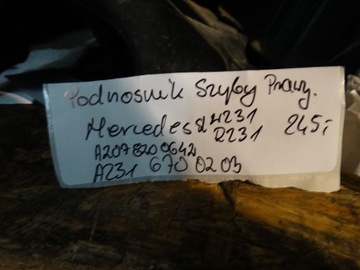 Podnośnik Szyby Prawy.
Mercedes sl W231
R231 245,-
A2078200642
A231 670 02 03